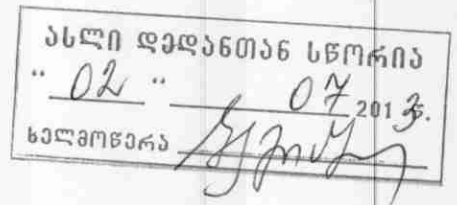 ასლი დედანთან სწორია
" 02 " 07 2013წ.
ხელმოწერა